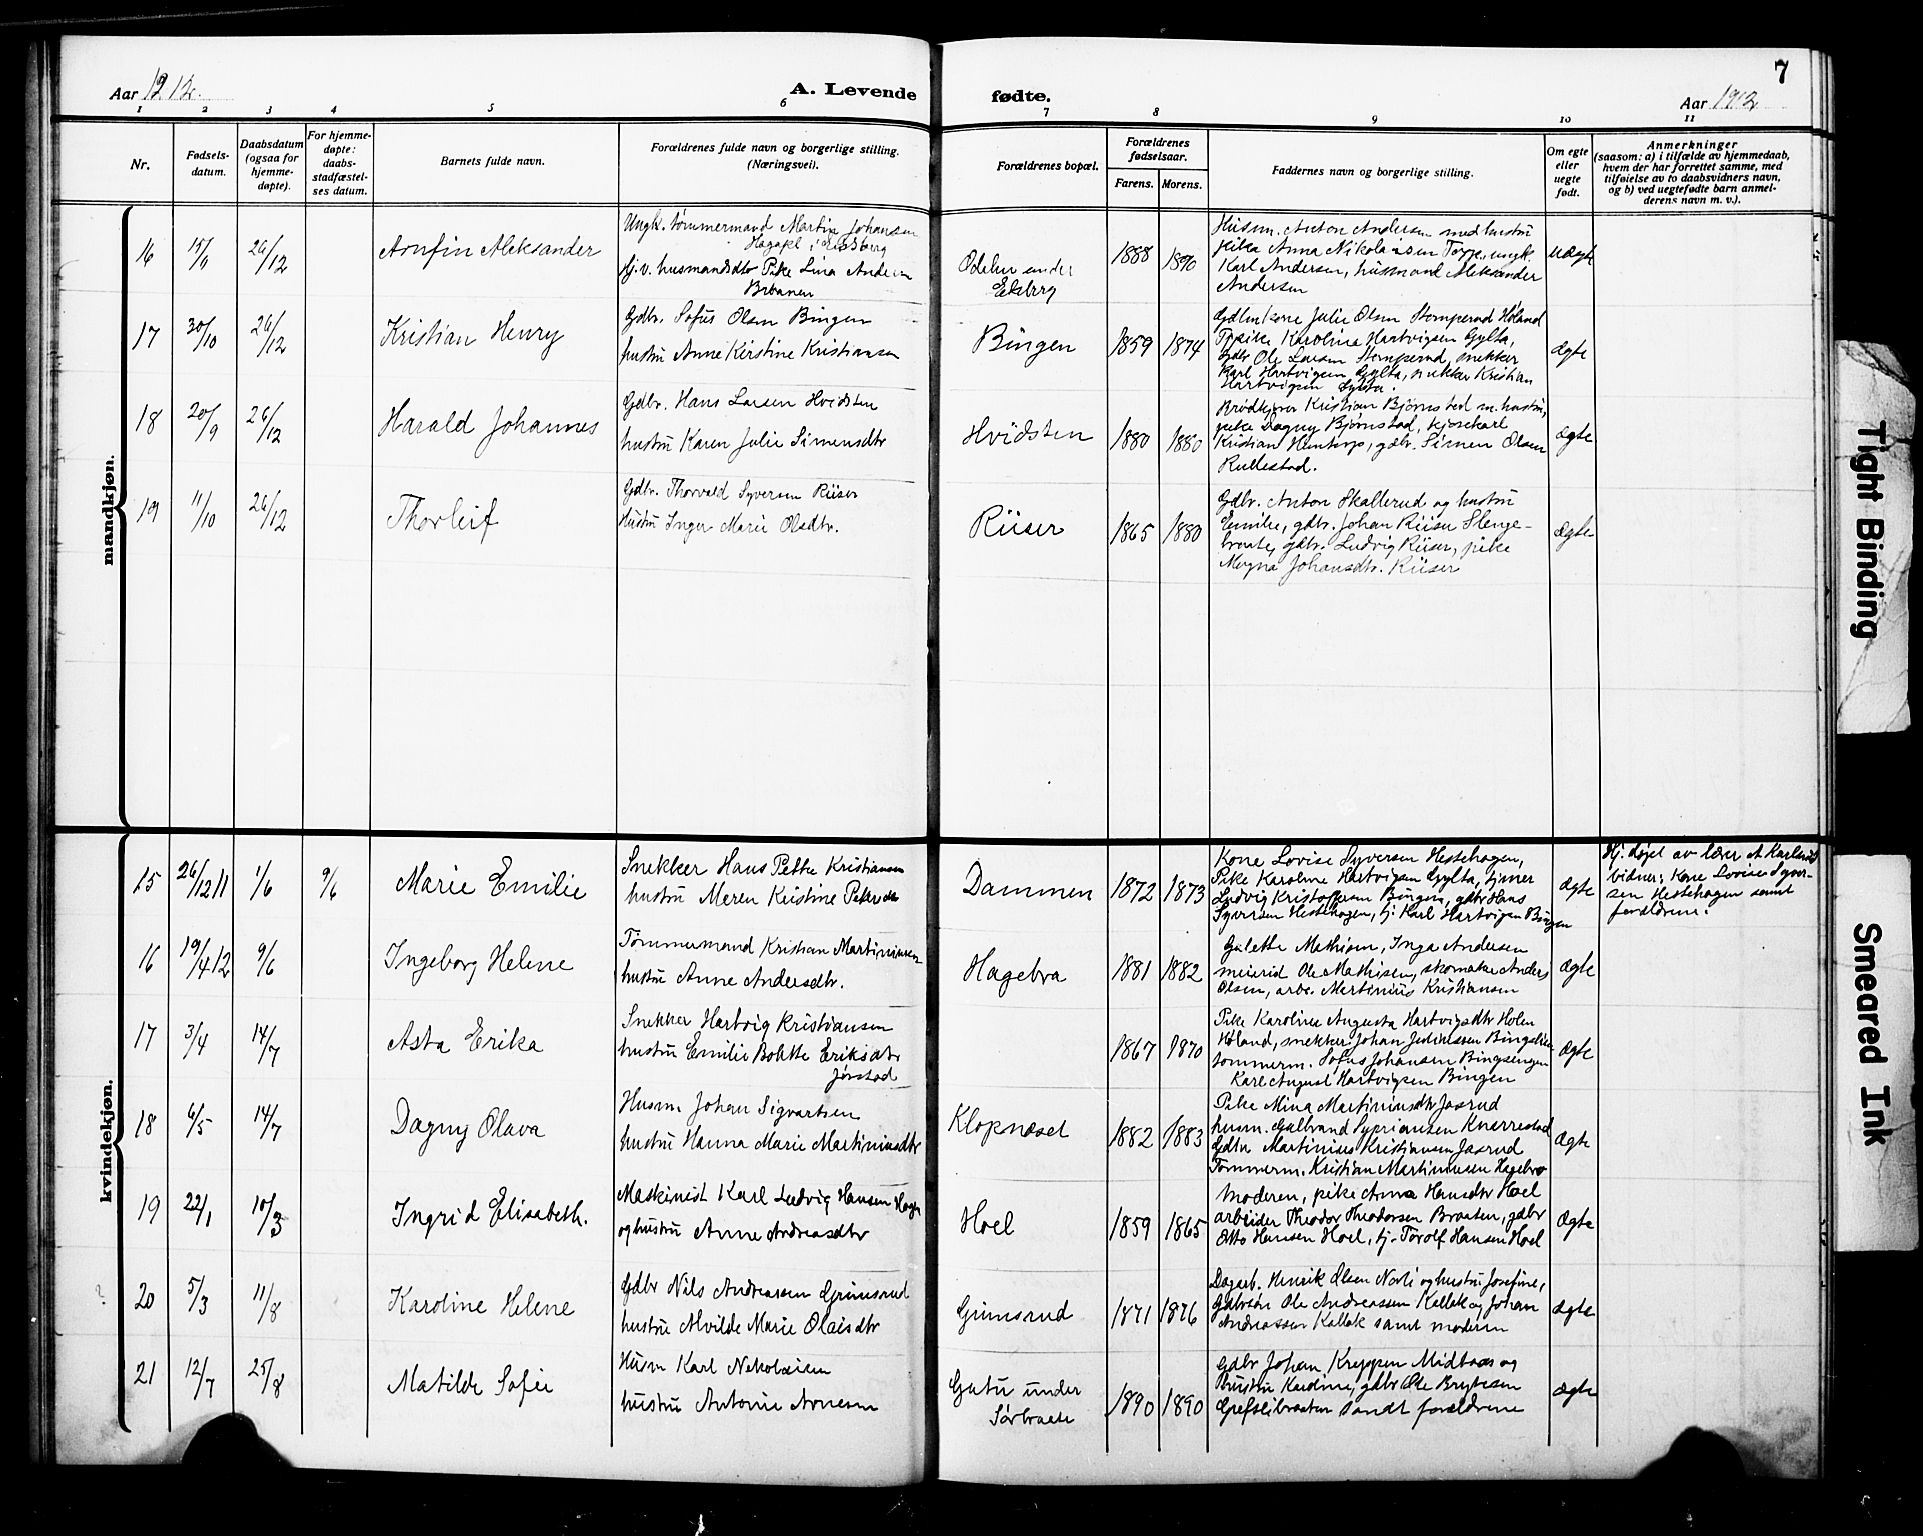 Aar 1912.
A. Levende
fødte.
7
Aar 1912
1 2 3 4 5 6 7 8 9 10 11
Nr.
Fødsels-
datum.
Daabsdatum
(ogsaa for
hjemme-
døpte).
For hjemme-
døpte:
daabs-
stadfæstel-
ses datum.
Barnets fulde navn.
Forældrenes fulde navn og borgerlige stilling.
(Næringsvei).
Forældrenes bopæl.
Forældrenes
fødselsaar.
Farens. Morens.
Faddernes navn og borgerlige stilling.
Om egte
eller
uegte
født.
Anmerkninger
(saasom: a) i tilfælde av hjemmedaab,
hvem der har forrettet samme, med
tilføielse av to daabsvidners navn,
og b) ved uegtefødte barn anmel-
derens navn m. v.).
mandkjøn.
16 15/11 26/12 Arnfin Aleksander
Ungk. tømmermand Martin Johansen
tj. v. husmandsdtr Pike Lina Andersen
Odelu under
Ekeberg
1888 1890
Husm. Anton Andersen med hustru
pike Anna Nikolaisen Topp, ungk.
Karl Andersen, husmand Aleksander
Andersen
uægte
17 30/10 26/12 Kristian Henry
Gdbr. Sofus Olsen Bingen
hustru Anne Kirstine Kristiansen
Bingen
1859 1874
Gdbrkone Julie Olsen Stomperud Høland
Pike Karoline Hartvigsen Gylta,
gdbr Ole Larsen Stomperud, snekker
Karl Hartvigsen Gylta, snekker Kristian
Hartvigsen Gylta.
ægte
18 20/9 26/12 Harald Johannes
Gdbr. Hans Larsen Hvidsten
hustru Karen Julie Simensdtr
Hvidsten
1880 1880
Brødkjører Kristian Bjørnstad m. hustru,
pike Dagny Bjørnstad, kjørekarl
Kristian, gdbr. Simen Olsen
Rullestad.
ægte
19 11/10 26/12 Thorleif
Gdbr. Thorvald Syversen Riiser
Hustru Inger Marie Olsdtr.
Riiser
1865 1880
Gdbr. Anton Skallerud og hustru
Emilie, gdbr. Johan Riiser Slenge-
braate, gdbr. Ludvig Riiser, pike
Magna Johansdtr. Riiser
ægte
kvindekjøn.
15 26/12 11 1/6 9/6 Marie Emilie
Snekker Hans Petter Kristiansen
hustru Meren Kristine Petersdtr
Dammen
1872 1873
Kone Lovise Syversen Hestehagen,
Pike Karoline Hartvigsen Gylta, tjener
Ludvig Kristoffersen Bingen, gdbr Hans
Syversen Hestehagen, tj. Karl Hartvigsen Bingen
ægte
Hj. døpt av lærer A Karlsrud
Vidner: Kone Lovise Syver-
sen Hestehagen samt
forældrene.
16 19/4 12 9/6 Ingeborg Helene
Tømmermand Kristian Martiniusen
hustru Anne Andersdtr.
Hagebra
1881 1882
Gulette Mathisen, Inga Andersen
meierid Ole Mathisen, skomaker Anders
Olsen, arb. Martinius Kristiansen
ægte
17 3/4 14/7 Asta Erika
Snekker Hartvig Kristiansen
hustru Emilie Bolette Eriksdtr
Jørstad
1867 1870
Pike Karoline Augusta Hartvigsdtr Holen
Høland, snekker Johan
tømmerm. Sofus Johansen Bingsengen
Karl August Hartvigsen Bingen
ægte
18 6/5 14/7 Dagny Olava
Husm. Johan Sigvartsen
hustru Hanna Marie Martiniusdtr
Klopnæset
1882 1883
Pike Mina Martiniusdtr Jaarud
husm. Gulbrand Syvriansen Knarrestad
Gdbr Martinius Kristiansen Jaarud
Tømmerm. Kristian Martiniusen Hagebra
ægte
19 22/1 10/3 Ingrid Elisabeth.
Maskinist Karl Ludvig Hansen
og hustru Anne Andreasdtr
Hoel
1859 1865
Moderen, pike Anna Hansdtr Hoel
arbeider Theodor Theodorsen Braaten, gdbr
Otto Hansen Hoel, tj. Torolf Hansen Hoel
ægte
? 20 5/3 11/8 Karoline Helene
Gdbr Nils Andreassen Grimsrud
hustru Alvilde Marie Olaisdtr
Grimsrud
1871 1876
Dagarb. Henrik Olsen Norli og hustru Josefine,
Gdbrsøn Ole Andreassen Kallak og Johan
Andreassen Kallak samt moderen
ægte
21 12/7 25/8 Matilde Sofie
Husm Karl Nikolaisen
hustru Antonie Arnesen
Gutu under
Sørbraate
1890 1890
Gdbr Johan Kreppen Midtaas og
hustru Karoline, gdbr Ole Brynesen
Grefslibraaten samt forældrene
ægte
Tight Binding
Smeared Ink